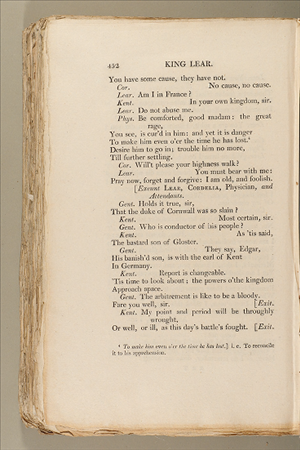 432 KING LEAR.
You have some cause, they have not.
Cor. No cause, no cause.
Lear. Am I in France?
Kent. In your own kingdom, sir.
Lear. Do not abuse me.
Phys. Be comforted, good madam: the great
rage,
You see, is cur'd in him: and yet it is danger
To make him even o'er the time he has lost.⁴
Desire him to go in; trouble him no more,
Till further settling.
Cor. Will't please your highness walk?
Lear. You must bear with me:
Pray now, forget and forgive: I am old, and foolish.
[Exeunt LEAR, CORDELIA, Physician, and
Attendants.
Gent. Holds it true, sir,
That the duke of Cornwall was so slain?
Kent. Most certain, sir.
Gent. Who is conductor of his people?
Kent. As 'tis said,
The bastard son of Gloster.
Gent. They say, Edgar,
His banish'd son, is with the earl of Kent
In Germany.
Kent. Report is changeable.
'Tis time to look about; the powers o'the kingdom
Approach apace.
Gent. The arbitrement is like to be a bloody.
Fare you well, sir. [Exit.
Kent. My point and period will be throughly
wrought,
Or well, or ill, as this day's battle's fought. [Exit.
⁴ To make him even o'er the time he has lost.] i. e. To reconcile
it to his apprehension.